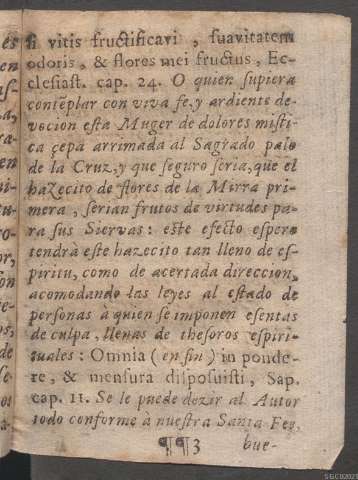 si vitis fructificavi, suavitatem
odoris, & flores mei fructus, Ec-
clesiast. cap. 24. O quien supiera
contẽplar con viva fe, y ardiente de-
vocion esta Muger de dolores misti-
ca çepa arrimada al Sagrado palo
de la Cruz, y que seguro seria, que el
hazecito de flores de la Mirra pri-
mera, serian frutos de virtudes pa-
ra sus Siervas: este efecto espero
tendrà este hazecito tan lleno de es-
piritu, como de acertada direccion,
acomodando las leyes al estado de
personas à quien se imponen esentas
de culpa, llenas de thesoros espiri-
tuales: Omnia (en fin) in ponde-
re, & mensura disposuisti, Sap.
cap. 11. Se le puede dezir al Autor
todo conforme à nuestra Santa Fey,
¶¶3 bue-